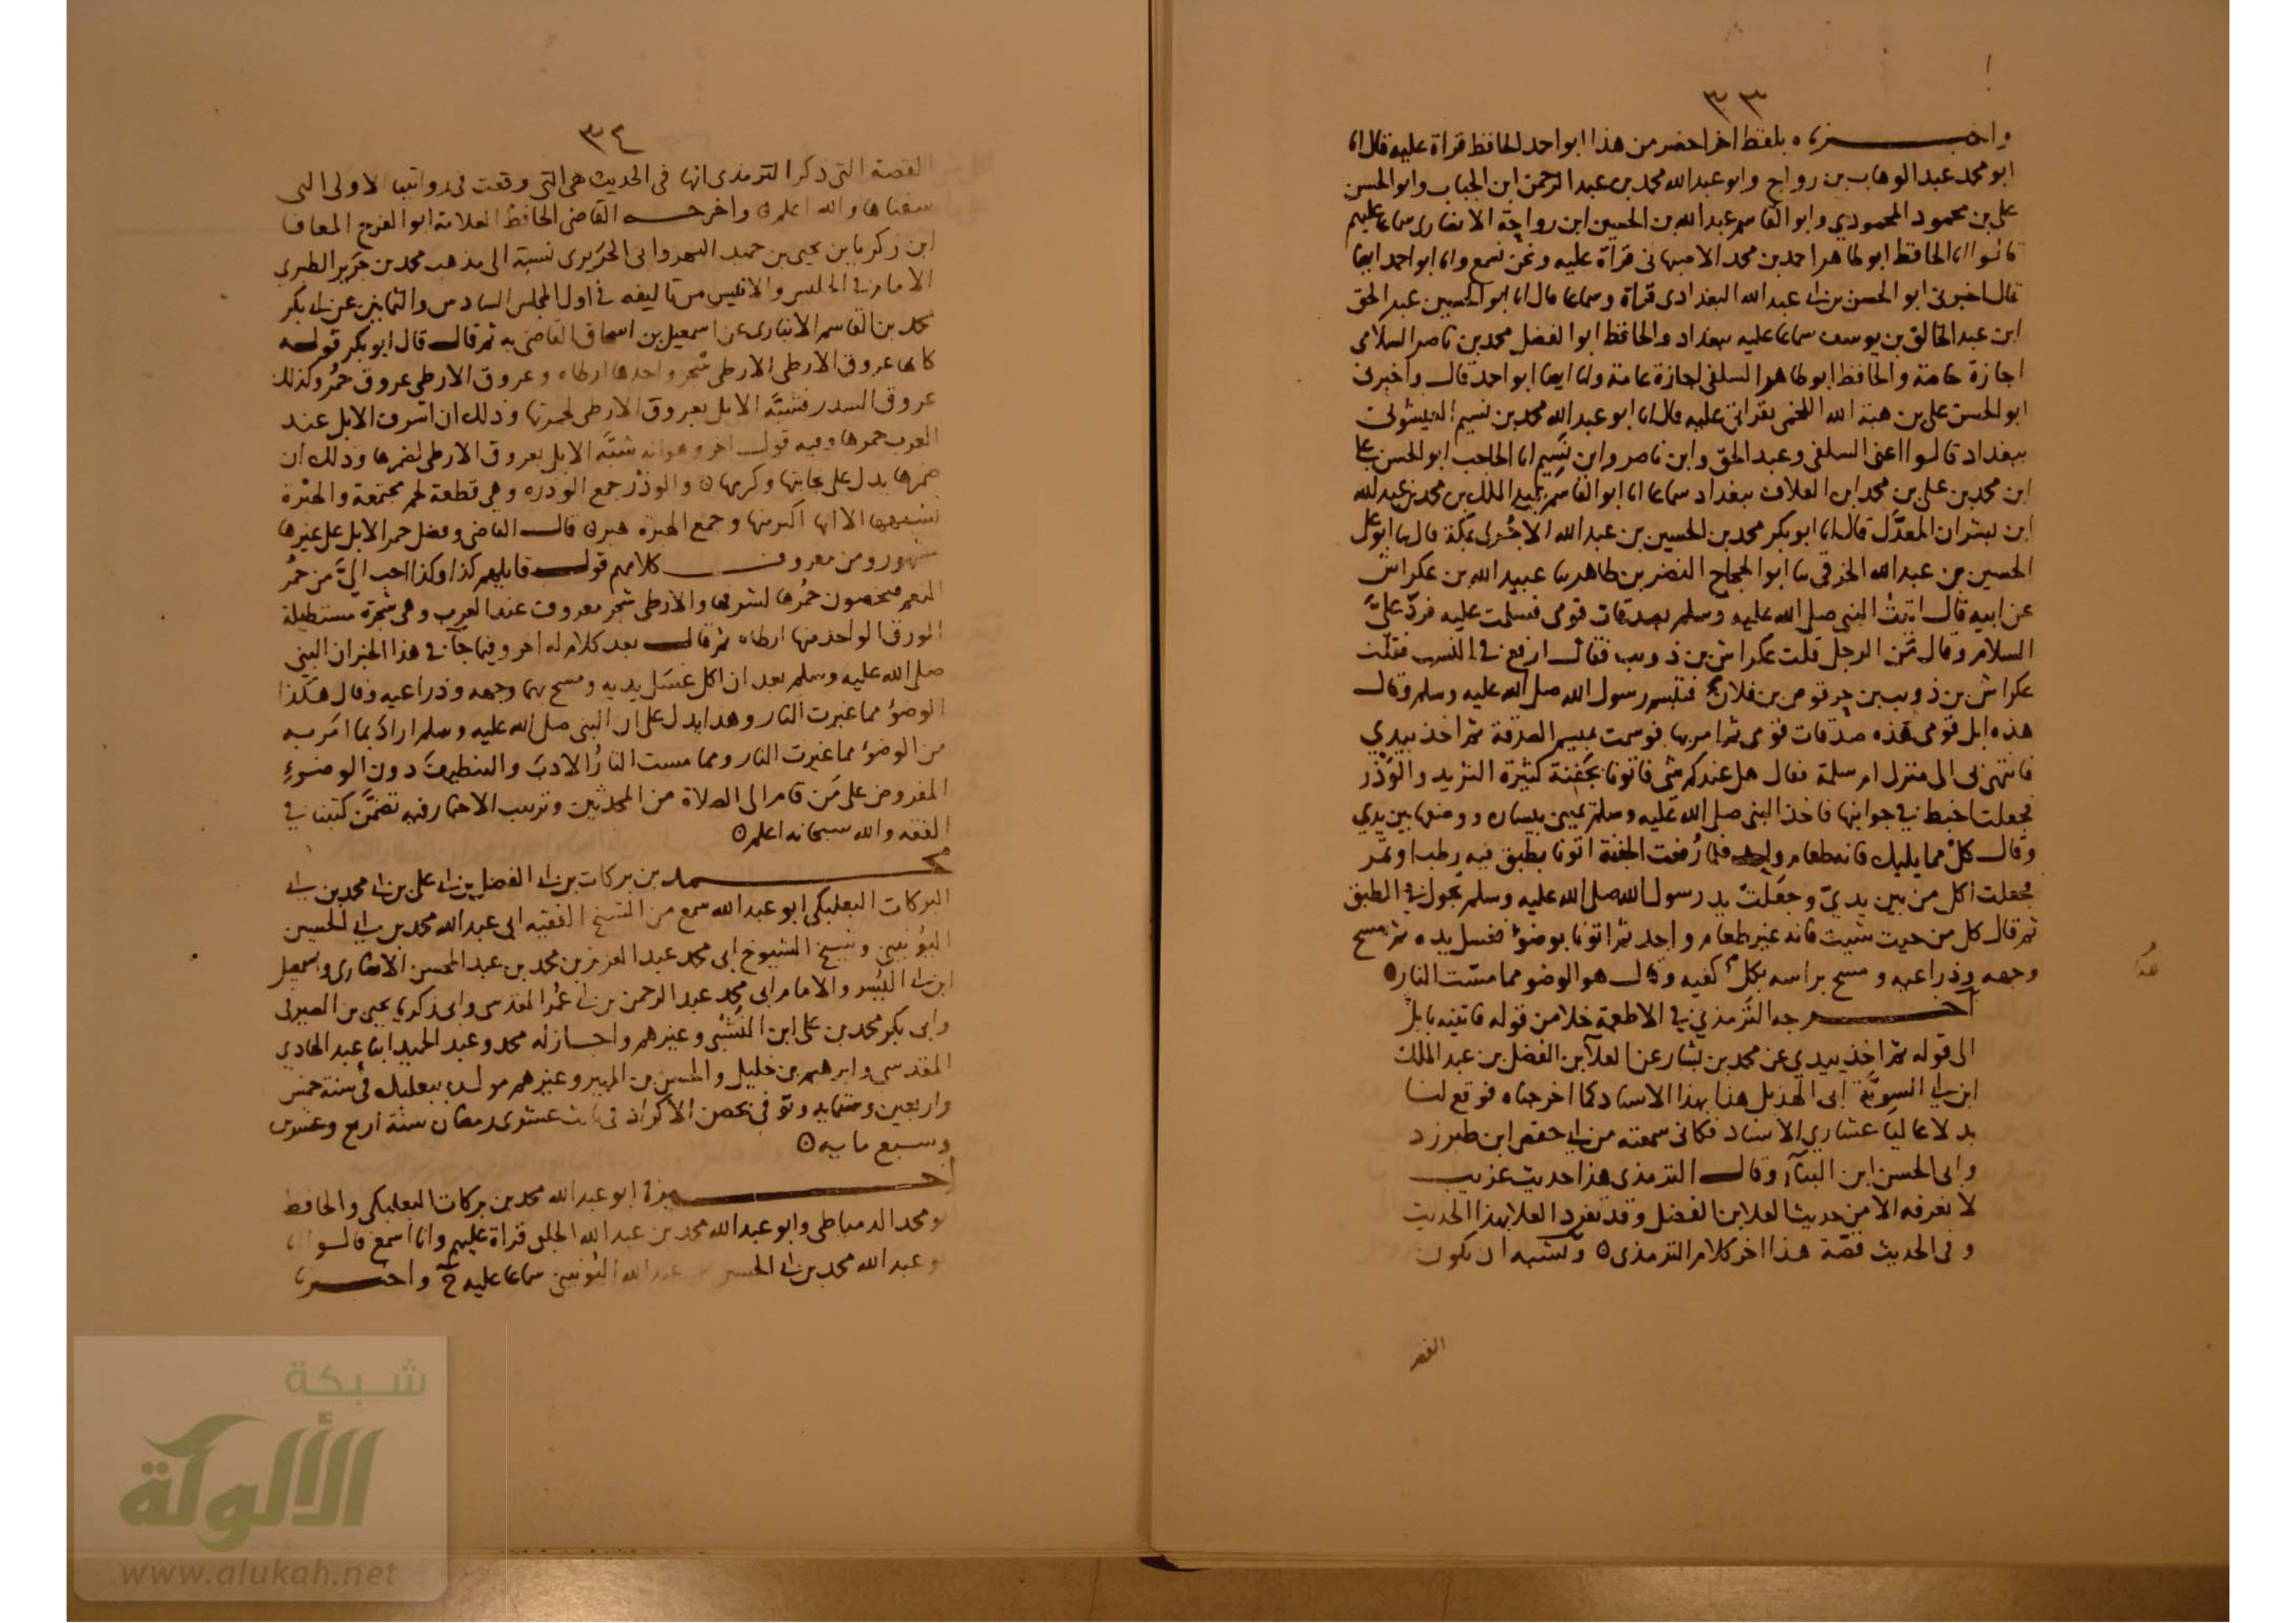 ٣٣
واخبرناه بلفظ اخر احضر من هذا ابو احمد الحافظ قراة عليه قال انا
ابو محمد عبد الوهاب بن رواج وابو عبد الله محمد بن عبد الرحمن ابن الجباب وابو الحسن
على بن محمود المحمودي وابو القاسم عبد الله بن الحسين ابن رواحة الانصارى سماعا عليهم
قالوا انا الحافظ ابو طاهر احمد بن محمد الاصبهانى قراة عليه ونحن نسمع وانا ابو احمد ايضا
قال اخبرنى ابو الحسن بن ابى عبد الله البغدادى قراة وسماعا قال انا ابو الحسين عبد الحق
ابن عبد الخالق بن يوسف سماعا عليه ببغداد والحافظ ابو الفضل محمد بن ناصر السلامى
اجازة خاصة والحافظ ابو طاهر السلفى اجازة عامة وانا ايضا ابو احمد قال واخبرنى
ابو الحسن على بن هبة الله اللخمى بقراتى عليه قال انا ابو عبد الله محمد بن نسيم العيشونى
ببغداد قالوا اعنى السلفى وعبد الحق وابن ناصر وابن نسيم انا الحاجب ابو الحسن على
ابن محمد بن على بن محمد ابن العلاف ببغداد سماعا انا ابو القاسم عبد الملك بن محمد بن عبد الله
ابن بشران المعدل قال انا ابو بكر محمد بن الحسين بن عبد الله الاجرى بمكة قال ثنا ابو على
الحسين بن عبد الله الخرقى ثنا ابو الحجاج النضر بن طاهر ثنا عبيد الله بن عكراش
عن ابيه قال اتيت النبى صلى الله عليه وسلم بصدقات قومى فسلمت عليه فردّ علىّ
السلام وقال من الرجل قلت عكراش بن ذويب فقال ارفع فى النسب فقلت
عكراش بن ذويب بن حرقوص بن فلان فتبسم رسول الله صلى الله عليه وسلم وقال
هذه ابل قومى هذه صدقات قومى ثم امر بها فوسمت بميسم الصدقة ثم اخذ بيدي
فانتهى بى الى منزل ام سلمة فقال هل عندكم شى فاتونا بجفنة كثيرة الثريد والوذر
فجعلت اخبط فى جوانبها فاخذ النبى صلى الله عليه وسلم يمينى بيساره ووضعها بين يدي
وقال كل مما يليك فانه طعام واحد فلما رفعت الجفنة اتونا بطبق فيه رطب او تمر
فجعلت اكل من بين يديّ وجعلت يد رسول الله صلى الله عليه وسلم تجول فى الطبق
ثم قال كل من حيث شيت فانه غير طعام واحد ثم اتونا بوضوء فغسل يده ثم مسح
وجهه وذراعيه ومسح براسه بكل كفيه وقال هو الوضو مما مسّت النار
اخرجه الترمذي فى الاطعمة خلا من قوله فاتيته بابل
الى قوله ثم اخذ بيدي عن محمد بن بشار عن العلآ بن الفضل بن عبد الملك
ابن ابى السويّة ابى الهذيل هذا بهذا الاسناد كما اخرجناه فوقع لنا
بدلا عاليا عشاري الاسناد فكانى سمعته من ابى حفص ابن طبرزد
وابى الحسن ابن البنآء وقال الترمذى هذا حديث غريب
لا نعرفه الا من حديث العلا بن الفضل وقد تفرد العلا بهذا الحديث
وفى الحديث قصّة هذا اخر كلام الترمذى ويشبه ان يكون
القصة
٣٤
القصة التى ذكر الترمذى انها فى الحديث هى التى وقعت فى روايتنا الاولى التى
سقناها والله اعلم واخرجه القاضى الحافظ العلامة ابو الفرج المعافا
ابن زكريا بن يحيى بن حميد النهروانى الجريرى نسبة الى مذهب محمد بن جرير الطبرى
الامام فى الجليس والانيس من تاليفه فى اول المجلس السادس والثمانين عن ابى بكر
محمد بن القاسم الانبارى عن اسمعيل بن اسحاق القاضى به ثم قال قال ابو بكر قوله
كانها عروق الارطى الارطى شجر واحدها ارطاه وعروق الارطى عروق حمر وكذلك
عروق السدر فشبّه الابل بعروق الارطى لحمرتها وذلك ان اشرف الابل عند
العرب حمرها وفيه قول اخر وهو انه شبّه الابل بعروق الارطى لضمرها وذلك ان
ضمرها يدل على نجابتها وكرمها والوذر جمع الوذره وهى قطعة لحم مجتمعة والهبرة
تشبهها الا انها اكبر منها وجمع الهبرة هبر قال القاضى وفضل حمر الابل على غيرها
مشهور ومن معروف كلامهم قول قايلهم كذا وكذا احب الىّ من حمر
النعم فيخصون حمرها لشرفها والارطى شجر معروف عند العرب وهى شجرة مستطيلة
الورق الواحد منها ارطاه ثم قال بعد كلام له اخر وفيما جآء فى هذا الخبر ان النبى
صلى الله عليه وسلم بعد ان اكل غسل يديه ومسح بهما وجهه وذراعيه وقال هكذا
الوضوء مما غيرت النار وهذا يدل على ان النبى صلى الله عليه وسلم اراد بما امر به
من الوضوء مما غيرت النار ومما مست النار الادب والتنظيف دون الوضوء
المفروض على من قام الى الصلاة من المحدثين وترتيب الاخبار فيه تضمّن كتبنا فى
الفقه والله سبحانه اعلم
محمد بن بركات بن ابى الفضل بن ابى على بن ابى محمد بن ابى
البركات البعلبكى ابو عبد الله سمع من الشيخ الفقيه ابى عبد الله محمد بن ابى الحسين
اليونينى وشيخ الشيوخ ابى محمد عبد العزيز بن محمد بن عبد المحسن الانصارى واسمعيل
ابن ابى اليسر والامام ابى محمد عبد الرحمن بن ابى عمر المقدسى وابى زكريا يحيى بن الصيرفى
وابى بكر محمد بن على ابن النشبى وغيرهم واجاز له محمد وعبد الحميد ابنا عبد الهادي
المقدسى وابرهيم بن خليل والحسن بن المهير وغيرهم مولده ببعلبك فى سنة خمس
واربعين وستمايه وتوفى بحصن الاكراد فى ثالث عشرى رمضان سنة اربع وعشرين
وسبع مايه
اخبرنا ابو عبد الله محمد بن بركات البعلبكى والحافظ
ابو محمد الدمياطى وابو عبد الله محمد بن عبد الله الحلبى قراة عليهم وانا اسمع قالوا انا
ابو عبد الله محمد بن ابى الحسين بن عبد الله اليونينى سماعا عليه ح واخبرنا
شبكة
الألوكة
www.alukah.net